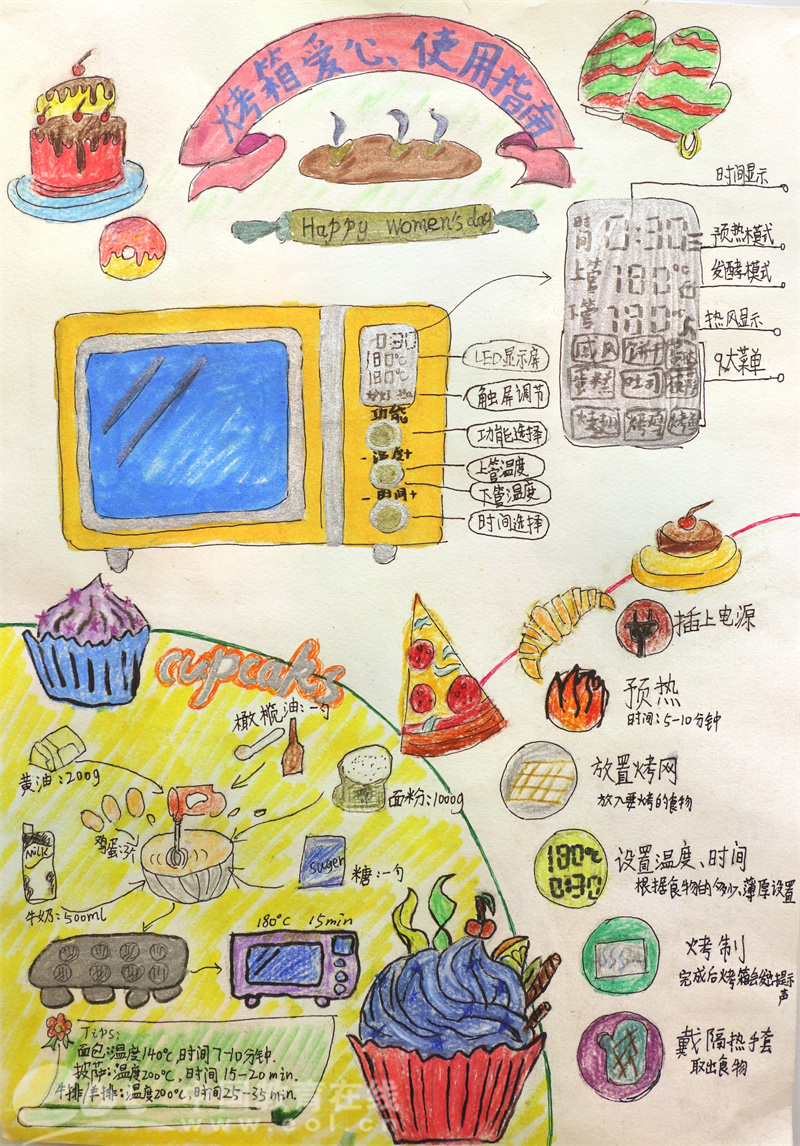 烤箱爱心、使用指南
Happy Women's day
时间显示
预热模式
发酵模式
热风显示
9大菜单
时间 0:30
上管 180℃
下管 180℃
饼干
蛋糕 吐司
烤鸡
0:30
180℃
180℃
功能
-温度+
-时间+
LED显示屏
触屏调节
功能选择
上管温度
下管温度
时间选择
插上电源
预热
时间:5-10分钟
放置烤网
放入要烤的食物
180℃
0:30
设置温度、时间
根据食物的多少、薄厚设置
烤制
完成后烤箱会发出提示声
戴隔热手套
取出食物
cupcaks
橄榄油:一勺
黄油:200g
面粉:1000g
鸡蛋:3个
MilK
牛奶:500ml
suger
糖:一勺
180℃ 15min
Tips:
面包:温度140℃,时间7-10分钟.
披萨:温度200℃,时间15-20min.
牛排/羊排:温度200℃,时间25-35min.
www.eol.cn